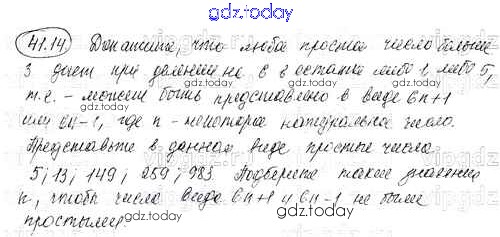 gdz.today
41.14 Докажите, что любое простое число больше
3 дает при делении на 6 в остатке либо 1, либо 5,
т.е. - может быть представлено в виде 6n+1
или 6n-1, где n - некоторое натуральное число.
Представьте в данном виде простые числа
5; 13; 149; 259; 983 Подберите такие значения
n, чтобы числа вида 6n+1 и 6n-1 не были
простыми.
gdz.today